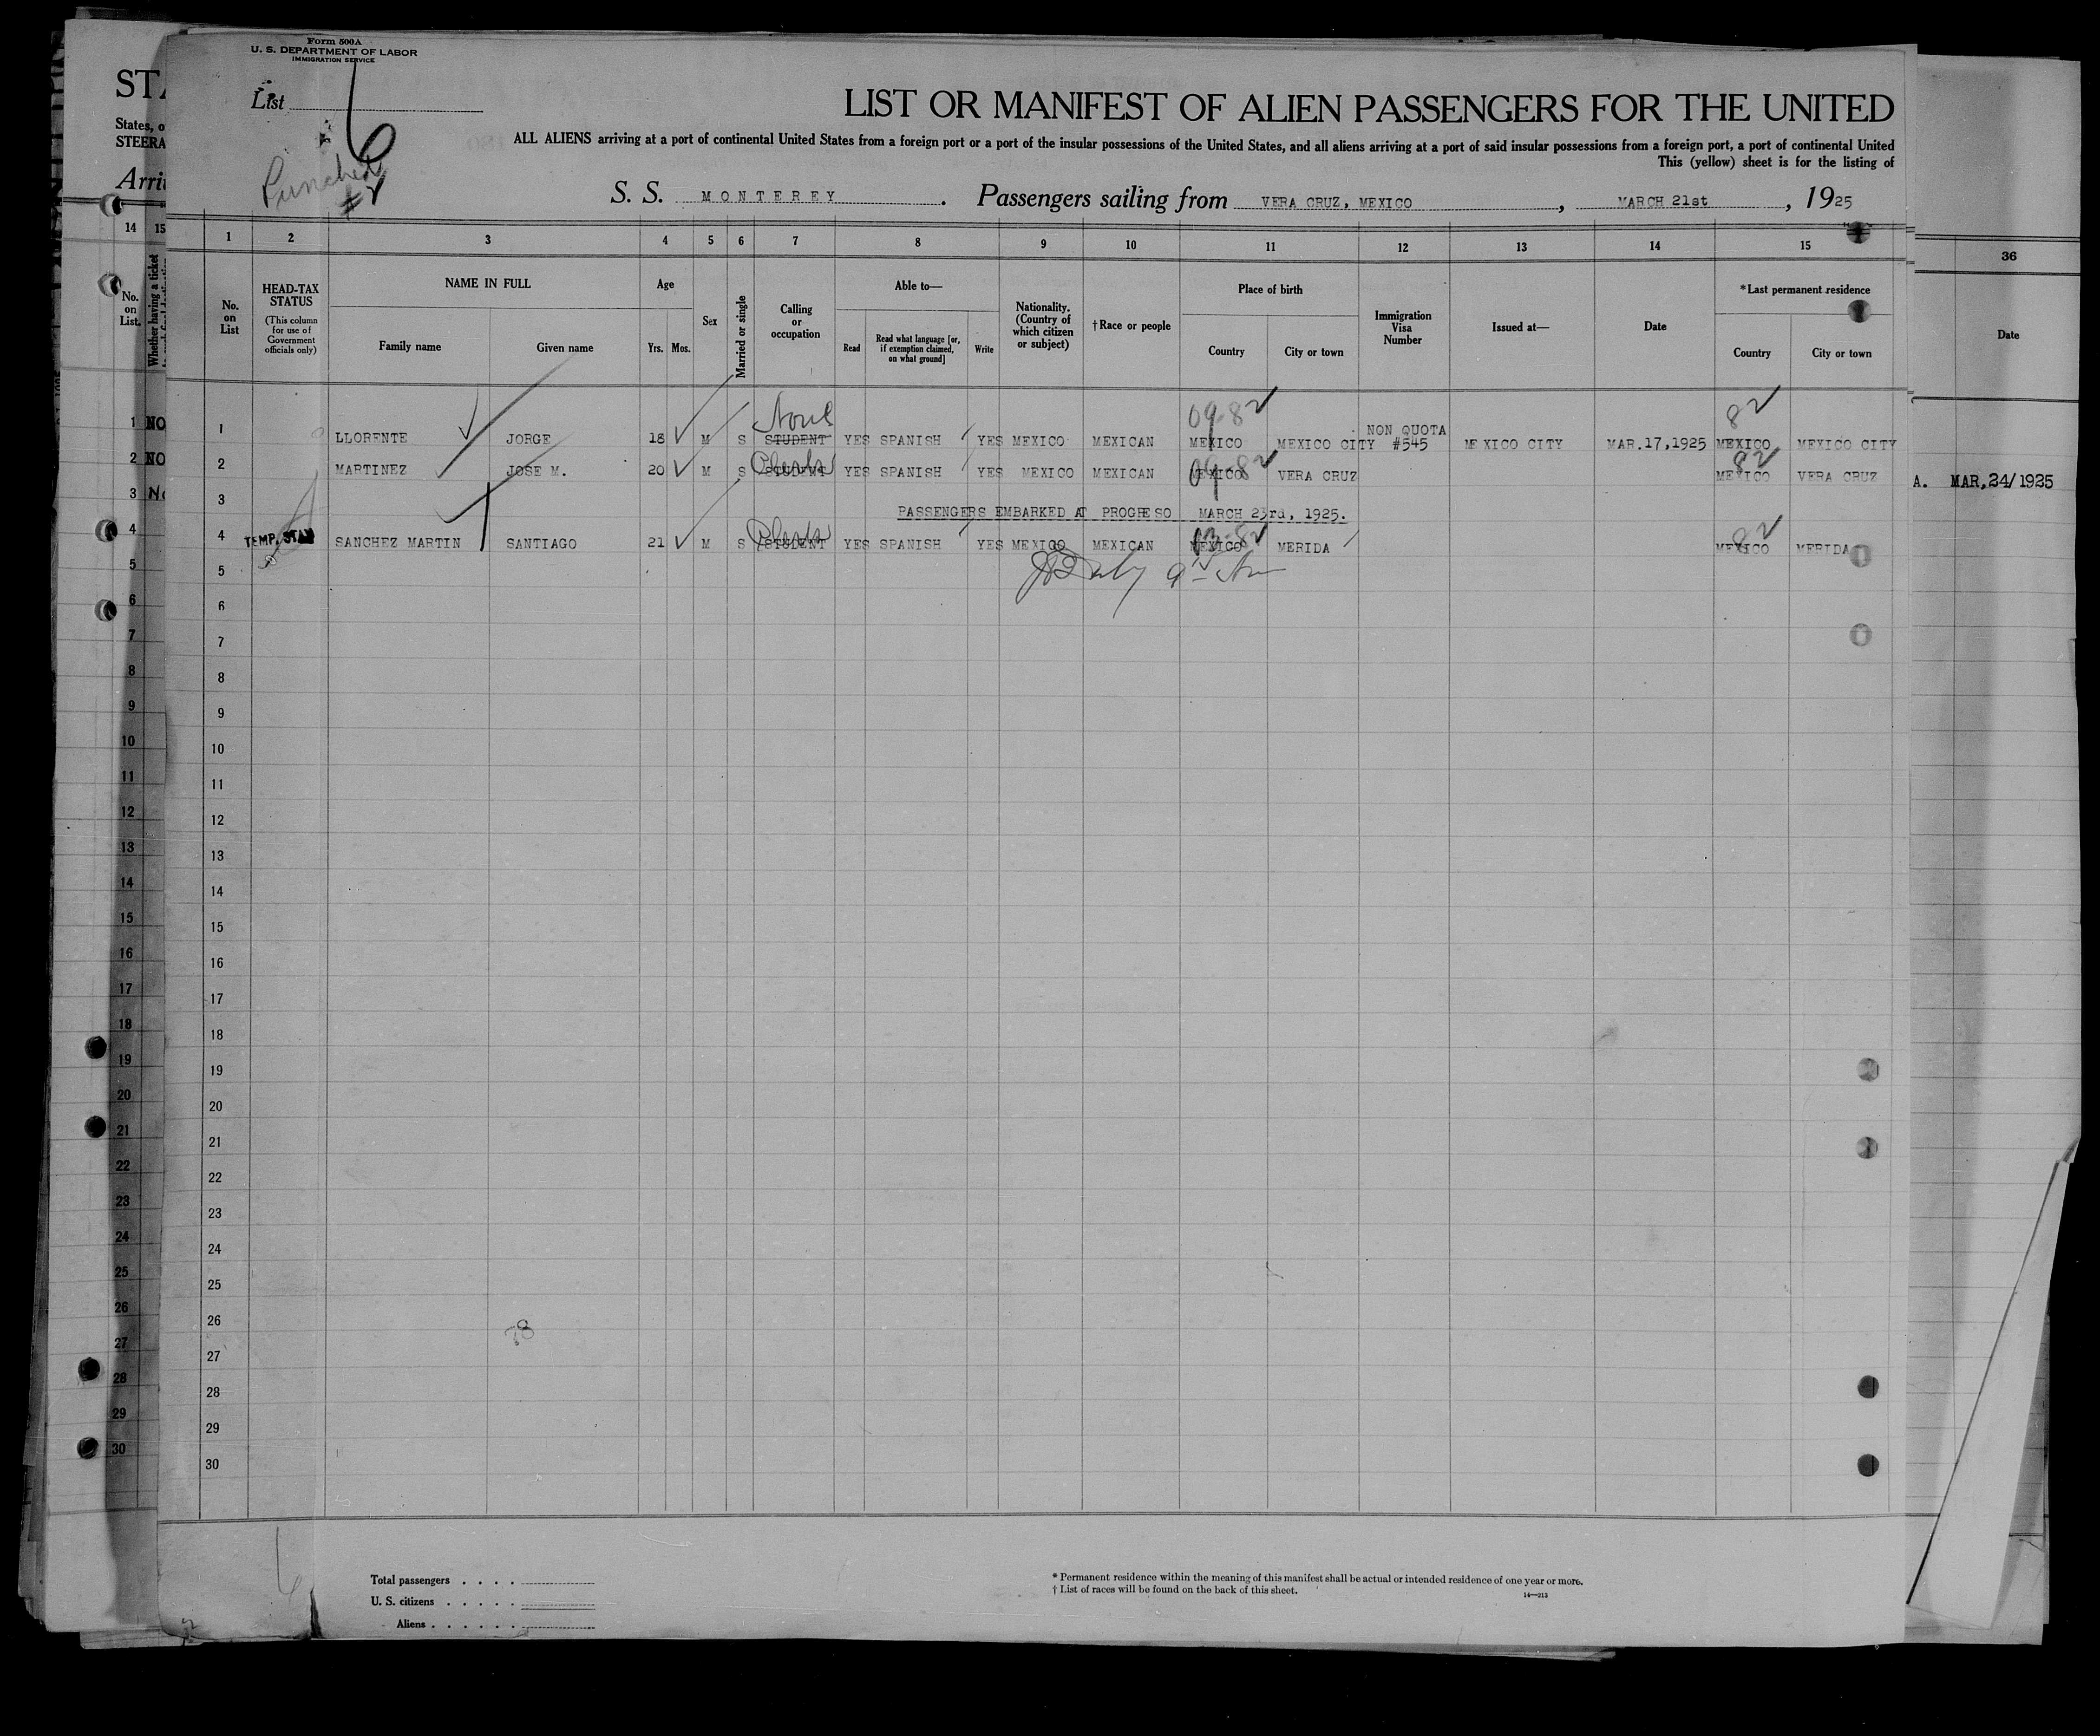 Form 500A
U. S. DEPARTMENT OF LABOR
IMMIGRATION SERVICE
List
6
Punched
#2
LIST OR MANIFEST OF ALIEN PASSENGERS FOR THE UNITED
ALL ALIENS arriving at a port of continental United States from a foreign port or a port of the insular possessions of the United States, and all aliens arriving at a port of said insular possessions from a foreign port, a port of continental United
This (yellow) sheet is for the listing of
S. S. MONTEREY. Passengers sailing from VERA CRUZ, MEXICO, MARCH 21st, 1925
STA
States, o
STEERA
Arri
14 15
No. on List.
Whether having a ticket
1 2 3 4 5 6 7 8 9 10 11 12 13 14 15
36
No. on List
HEAD-TAX STATUS (This column for use of Government officials only)
NAME IN FULL
Family name Given name
Age
Yrs. Mos.
Sex
Married or single
Calling or occupation
Able to—
Read
Read what language [or, if exemption claimed, on what ground]
Write
Nationality. (Country of which citizen or subject)
†Race or people
Place of birth
Country City or town
Immigration Visa Number
Issued at—
Date
*Last permanent residence
Country City or town
Date
None 09-82 82
1 NO
1 LLORENTE JORGE 18 M S STUDENT YES SPANISH YES MEXICO MEXICAN MEXICO MEXICO CITY NON QUOTA #545 MEXICO CITY MAR.17,1925 MEXICO MEXICO CITY
Clerk 09-82 82
2 NO
2 MARTINEZ JOSE M. 20 M S STUDENT YES SPANISH YES MEXICO MEXICAN MEXICO VERA CRUZ MEXICO VERA CRUZ
3 No
A. MAR,24/1925
3
PASSENGERS EMBARKED AT PROGRESO MARCH 23rd, 1925.
Clerk 13-82 82
4
4 TEMP. STAY SANCHEZ MARTIN SANTIAGO 21 M S STUDENT YES SPANISH YES MEXICO MEXICAN MEXICO MERIDA MEXICO MERIDA
5 5
6 6
7 7
8 8
9 9
10 10
11 11
12 12
13 13
14 14
15 15
16 16
17 17
18 18
19 19
20 20
21 21
22 22
23 23
24 24
25 25
26 26
78
27 27
28 28
29 29
30 30
Total passengers . . . .
U. S. citizens . . . . .
Aliens . . . . . .
* Permanent residence within the meaning of this manifest shall be actual or intended residence of one year or more.
† List of races will be found on the back of this sheet.
14—213